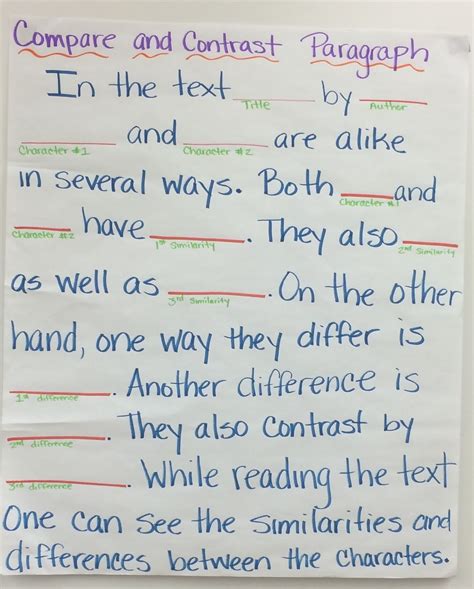 Compare and Contrast Paragraph
In the text ______ by ______
Title Author
______ and ______ are alike
Character #1 Character #2
in several ways. Both ______ and
Character #1
______ have ______. They also ______
Character #2 1st Similarity 2nd Similarity
as well as ______. On the other
3rd Similarity
hand, one way they differ is
______. Another difference is
1st difference
______. They also contrast by
2nd difference
______. While reading the text
3rd difference
One can see the similarities and
differences between the characters.